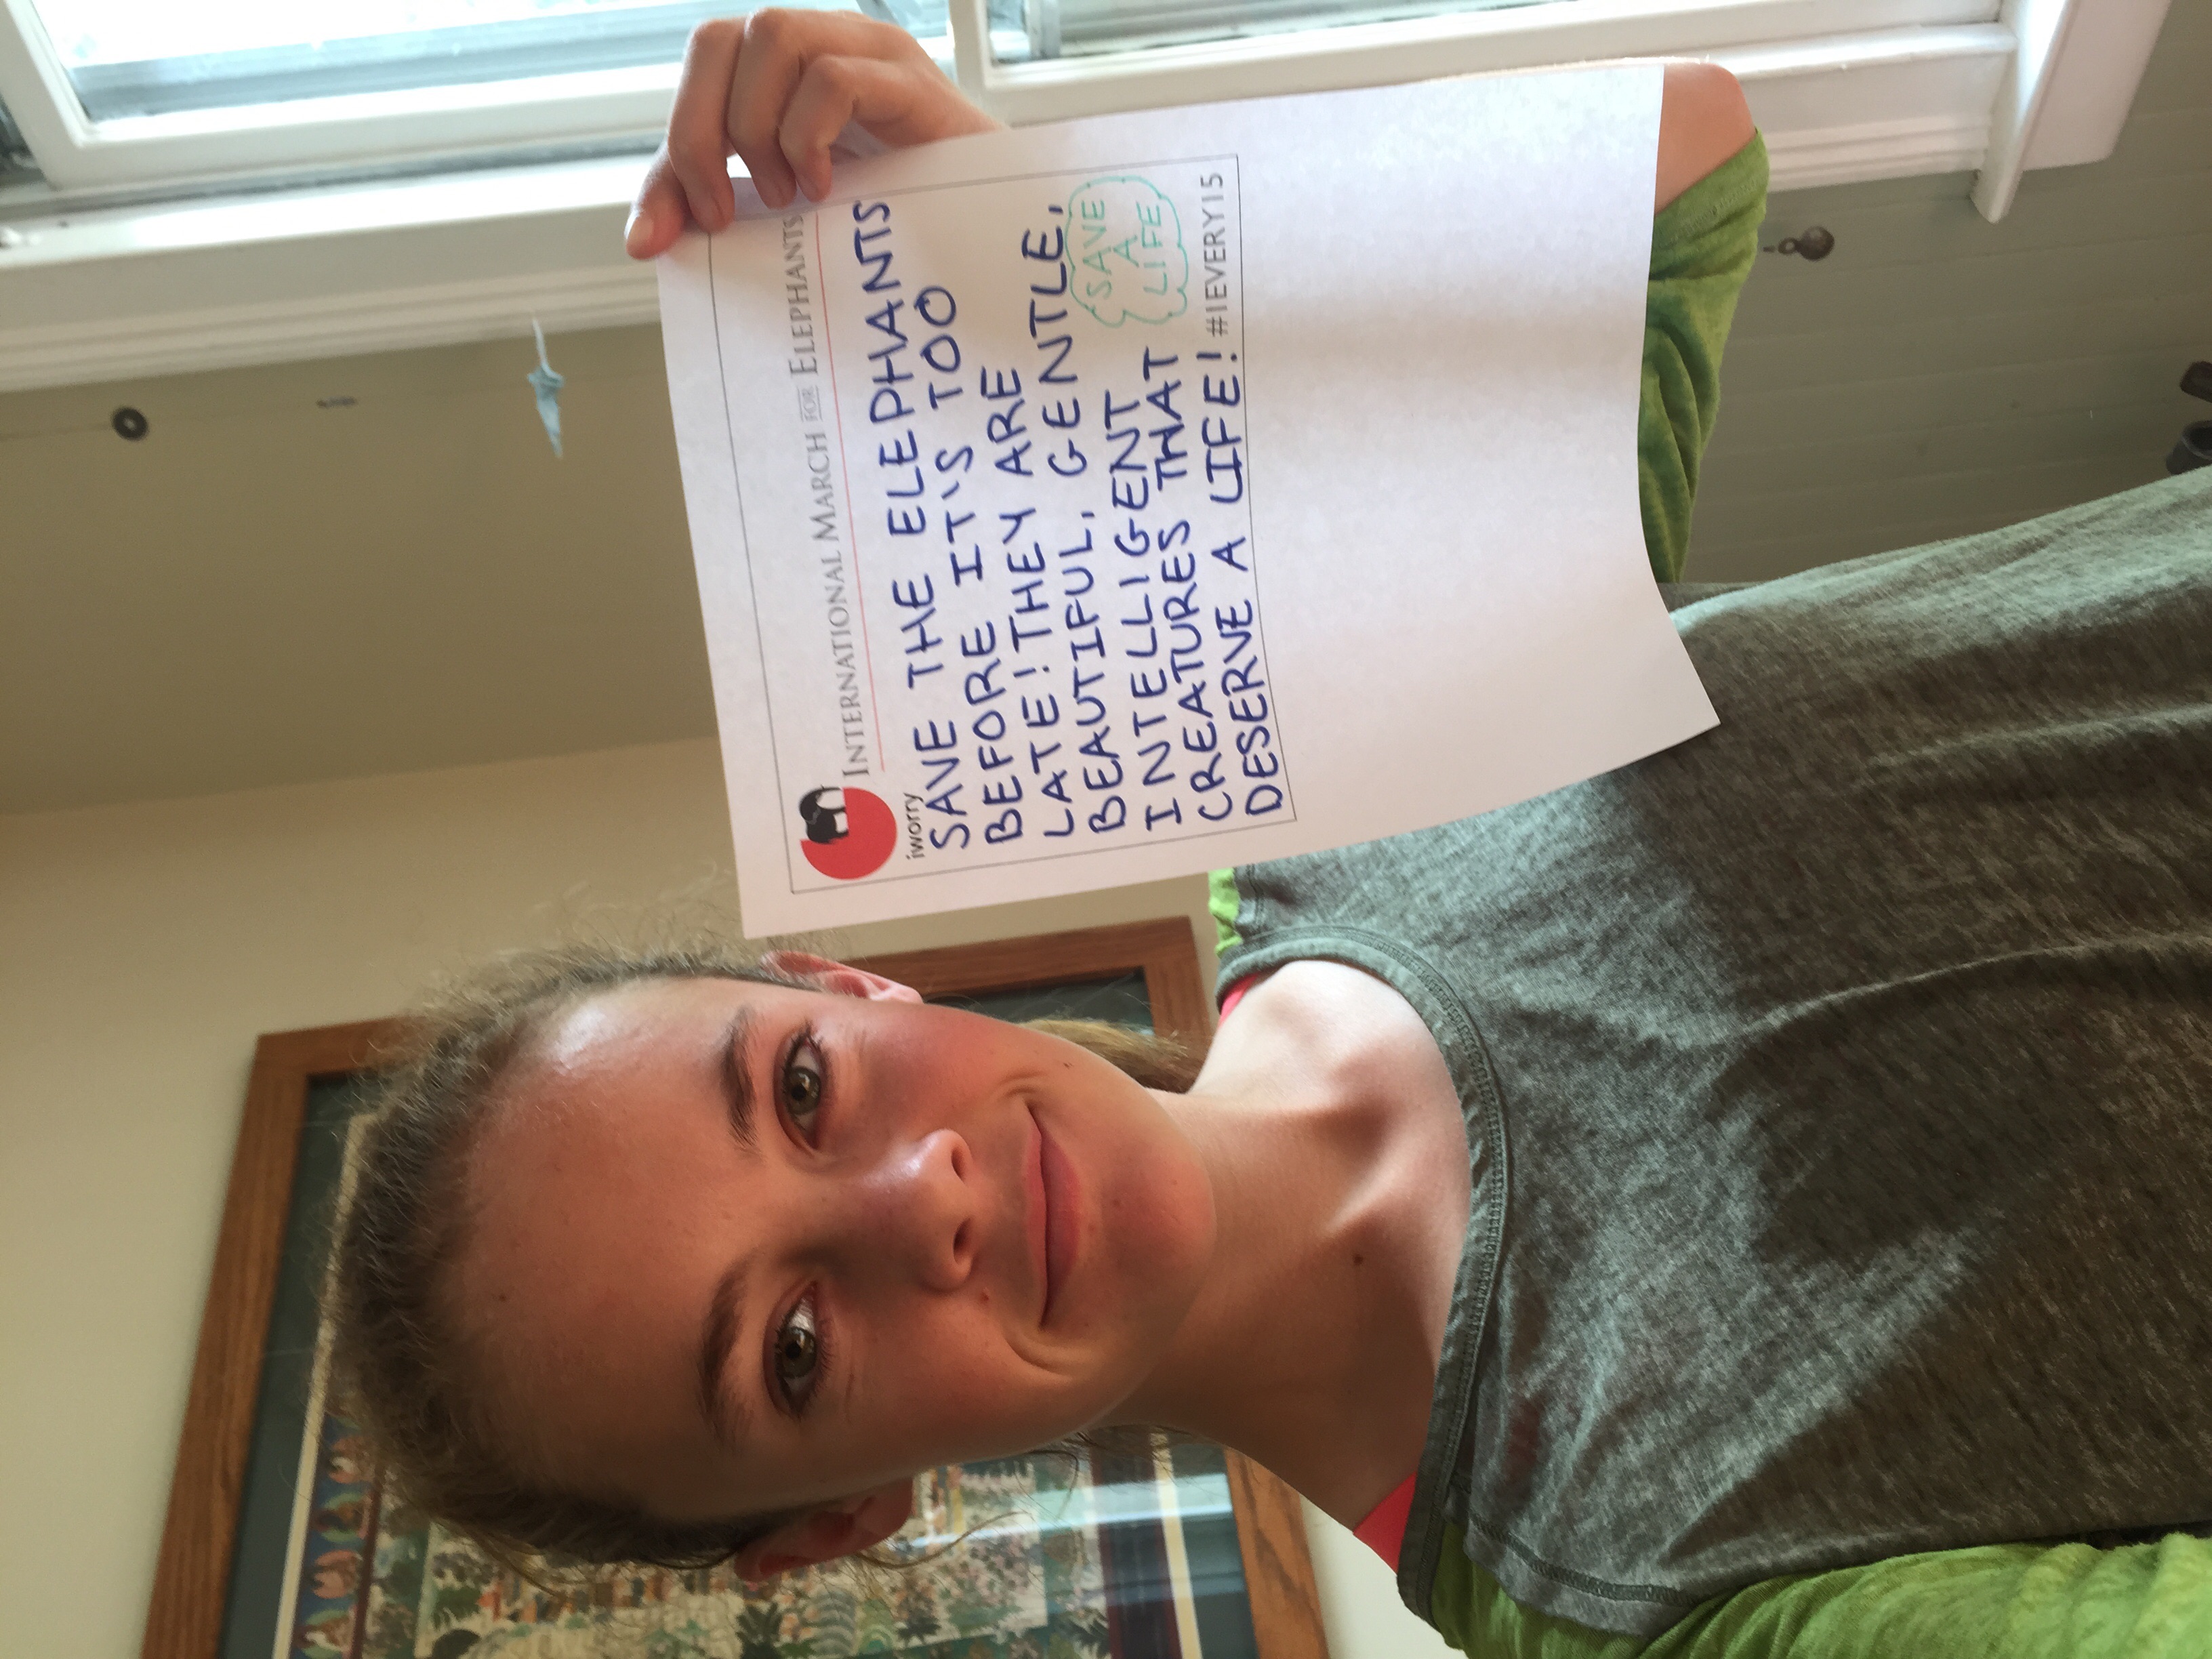 INTERNATIONAL MARCH FOR ELEPHANTS
iworry
SAVE THE ELEPHANTS
BEFORE IT'S TOO
LATE! THEY ARE
BEAUTIFUL, GENTLE,
INTELLIGENT
CREATURES THAT
DESERVE A LIFE!
SAVE
A
LIFE
#1EVERY15